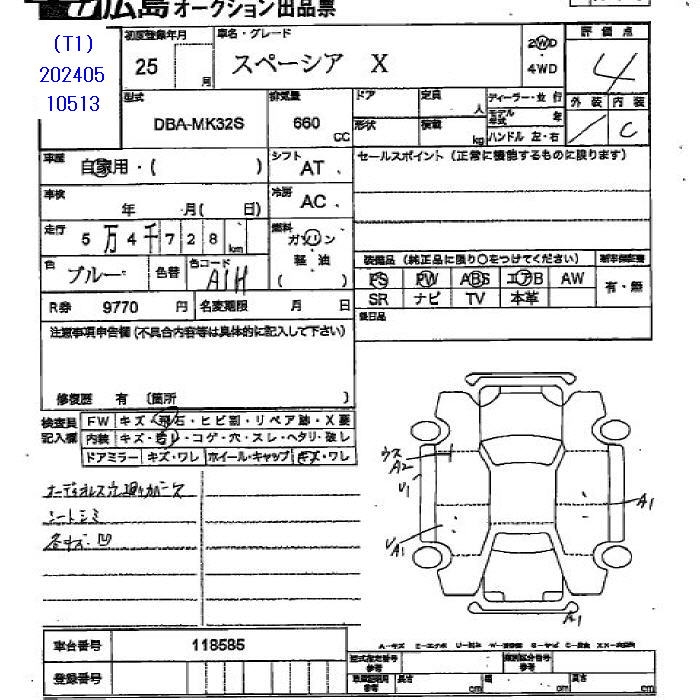 広島 オークション出品票
(T1)
202405
10513
初度登録年月
25 月
車名・グレード
スペーシア X
2WD
4WD
評価点
4
型式
DBA-MK32S
排気量
660 CC
ドア
定員 人
形状
積載 kg
ディーラー・並行
モデル年式 年
ハンドル 左・右
外装 内装
C
車歴
自家用・( )
シフト
AT
セールスポイント (正常に機能するものに限ります)
車検
年 月( 日)
冷房
AC
走行
5万4千728km
燃料
ガソリン
軽油
( )
色
ブルー
色替
色コード
A1H
装備品 (純正品に限り○をつけてください)
新車保証書
PS PW ABS エアB AW
SR ナビ TV 本革
有・無
R券 9770 円
名変期限 月 日
後日品
注意事項申告欄 (不具合内容等は具体的に記入して下さい)
修復歴 有 (箇所 )
検査員記入欄
FW キズ・飛石・ヒビ割・リペア跡・X要
内装 キズ・汚レ・コゲ・穴・スレ・ヘタリ・破レ
ドアミラー キズ・ワレ ホイール・キャップ キズ・ワレ
オーディオレス
シートシミ
各キズ.凹
ウス
A2
U1
A1
A1
A1
車台番号 118585
登録番号
型式指定番号 参考
類別区分番号 参考
車庫証明用 参考
長さ cm
幅 cm
高さ cm